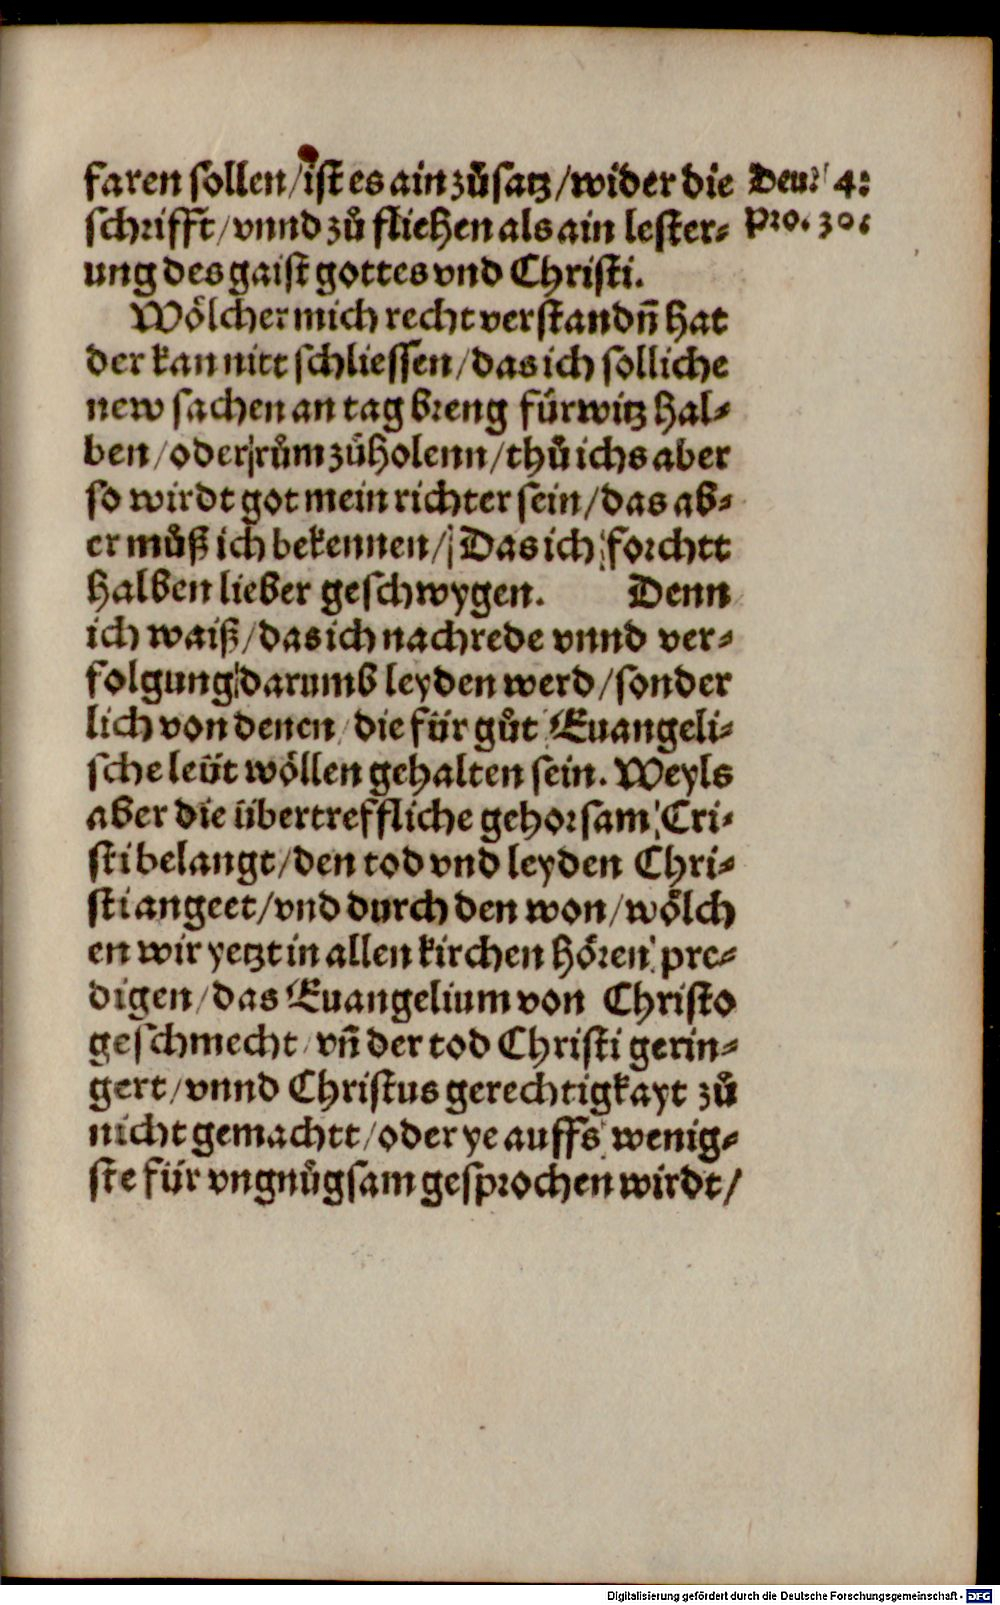 faren sollen/ist es ain zůsatz/wider die
Deu. 4.
schrifft/vnnd zů fliehen als ain lester⸗
Pro. 30.
ung des gaist gottes vnd Christi.
Wölcher mich recht verstandñ hat
der kan nitt schliessen/das ich solliche
new sachen an tag breng fürwitz hal⸗
ben/oder rům zůholenn/thů ichs aber
so wirdt got mein richter sein/das ab⸗
er můß ich bekennen/Das ich forchtt
halben lieber geschwygen. Denn
ich waiß/das ich nachrede vnnd ver⸗
folgung darumb leyden werd/sonder
lich von denen/die für gůt Euangeli⸗
sche leüt wöllen gehalten sein. Weyls
aber die übertreffliche gehorsam Cri⸗
sti belangt/den tod vnd leyden Chri⸗
sti angeet/vnd durch den won/wölch
en wir yetzt in allen kirchen hören pre⸗
digen/das Euangelium von Christo
geschmecht/vñ der tod Christi gerin⸗
gert/vnnd Christus gerechtigkayt zů
nicht gemachtt/oder ye auffs wenig⸗
ste für vngnůgsam gesprochen wirdt/
Digitalisierung gefördert durch die Deutsche Forschungsgemeinschaft - DFG